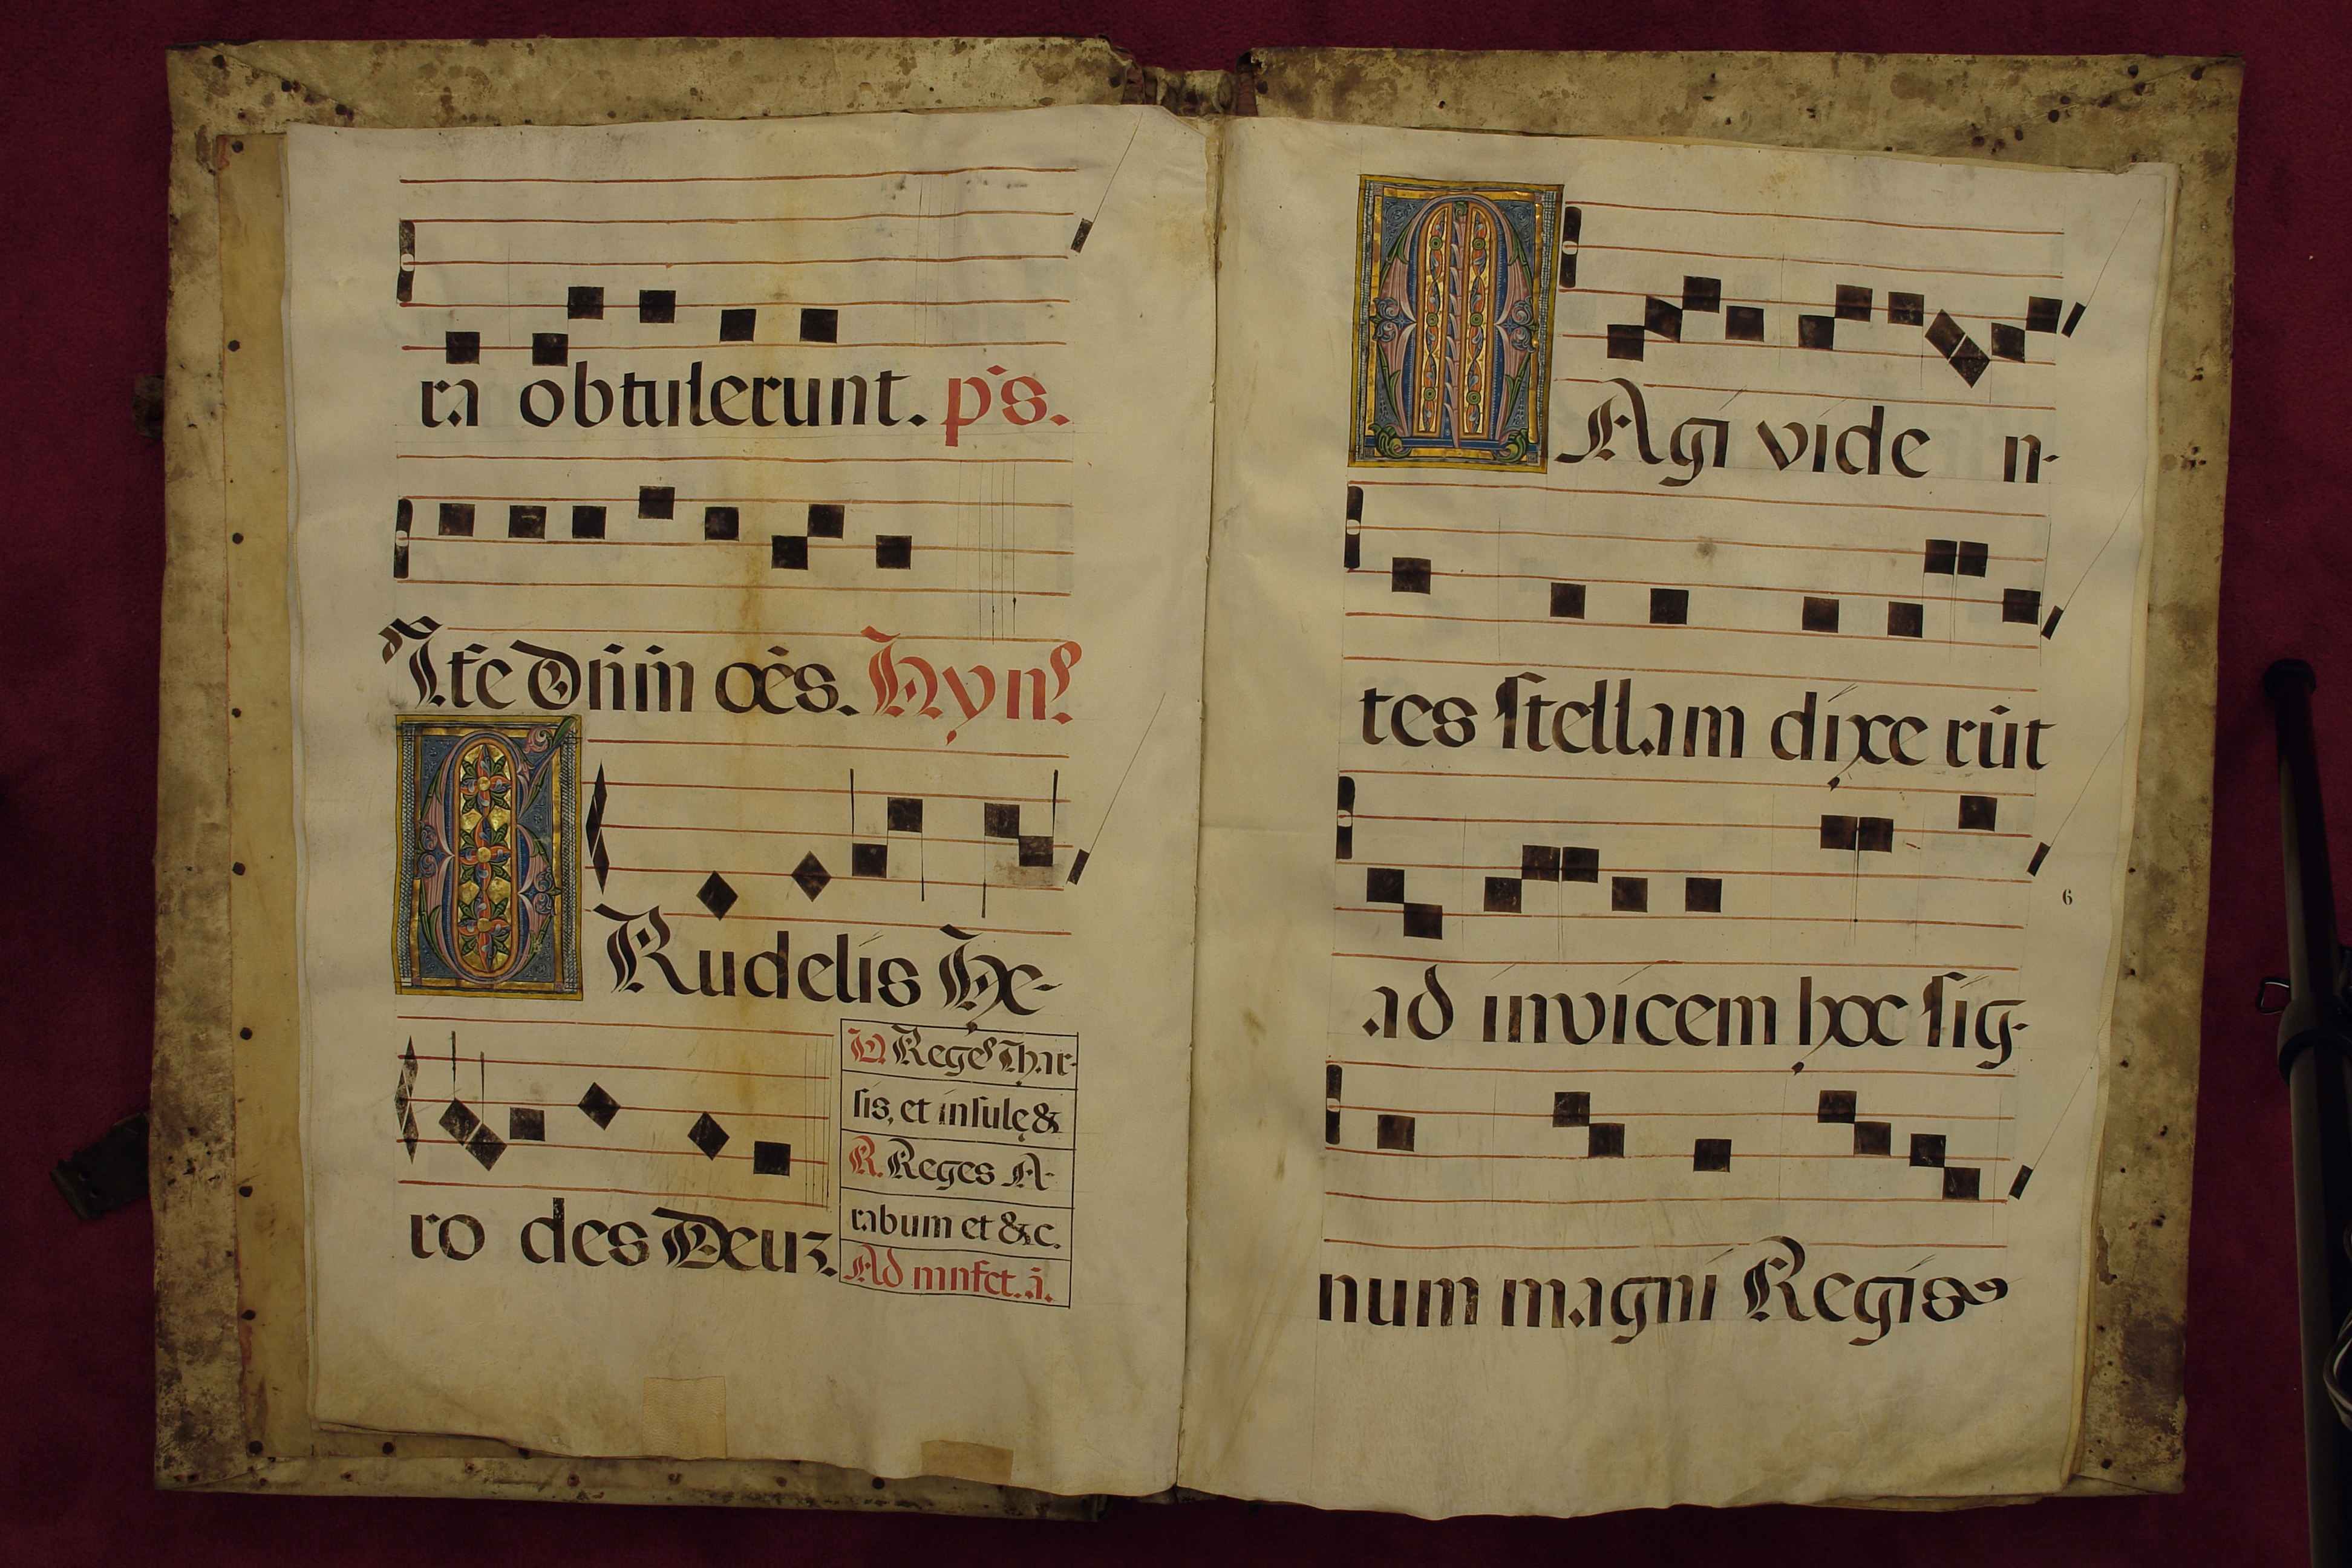 ra obtulerunt. ps.
Ate dn̄m oēs. Hyn⁹
CRudelis He-
ro des Deuz.
V. Reges Thar-
sis, et insulę &
R. Reges A-
rabum et &c.
Ad mnfct. ā.
MAgi vide n-
tes stellam dixe rūt
ad invicem hoc sig-
6
num magni Regis